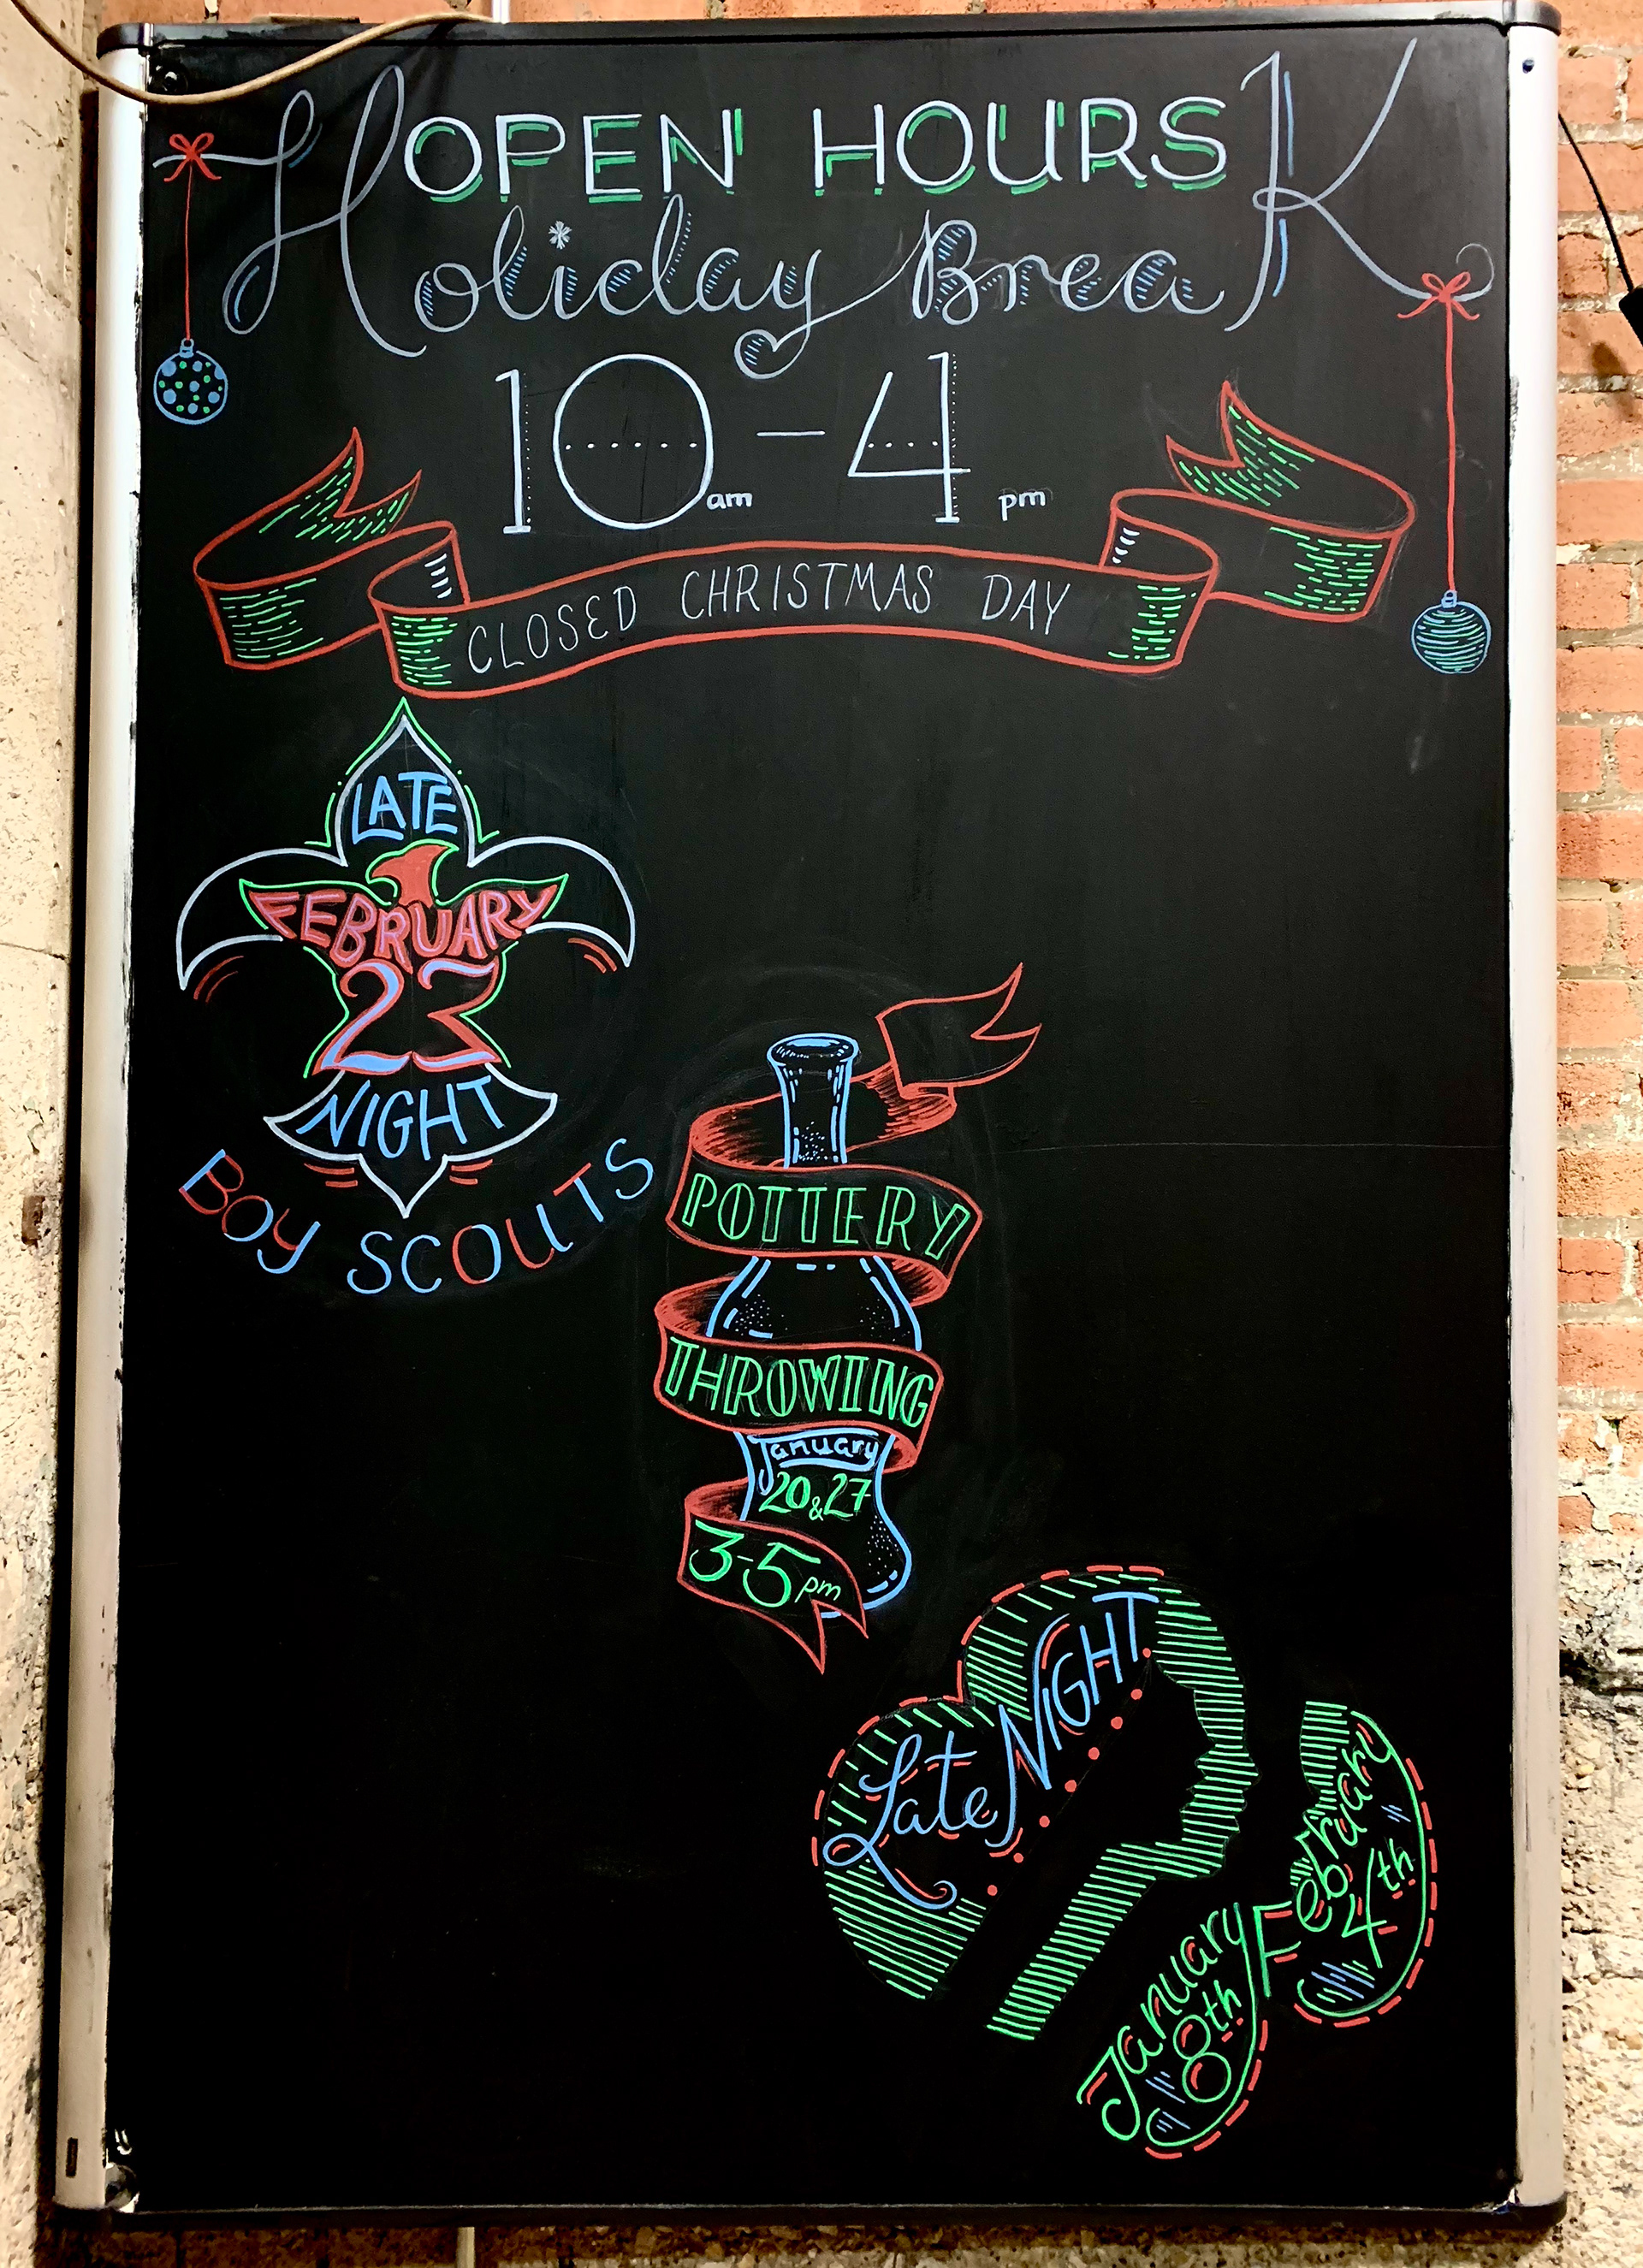 OPEN HOURS
Holiday BreaK
10am - 4pm
CLOSED CHRISTMAS DAY
LATE
FEBRUARY
23
NIGHT
BOY SCOUTS
POTTERY
THROWING
January
20 & 27
3-5pm
Late NIGHT
January
8th
February
4th